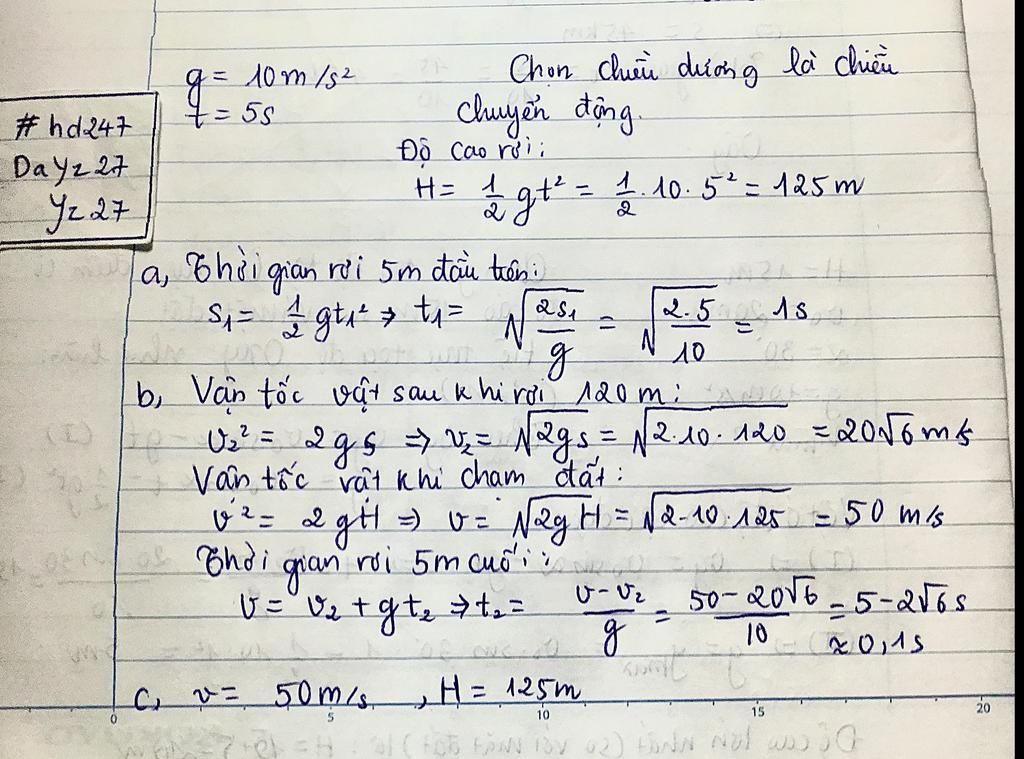 g = 10m/s² Chọn chiều dương là chiều
t = 5s chuyển động.
#hd247
DaYz27
Yz27
Độ cao rơi:
H = 1/2 gt² = 1/2 · 10 · 5² = 125 m
a, Thời gian rơi 5m đầu tiên:
s₁ = 1/2 gt₁² ⇒ t₁ = √(2s₁/g) = √(2.5/10) = 1s
b, Vận tốc vật sau khi rơi 120m:
v₂² = 2gs ⇒ v₂ = √(2gs) = √(2·10·120) = 20√6 m/s
Vận tốc vật khi chạm đất:
v² = 2gH ⇒ v = √(2gH) = √(2·10·125) = 50 m/s
Thời gian rơi 5m cuối:
v = v₂ + gt₂ ⇒ t₂ = (v - v₂)/g = (50 - 20√6)/10 = 5 - 2√6 s
≈ 0,1s
c, v = 50m/s , H = 125m
0 5 10 15 20